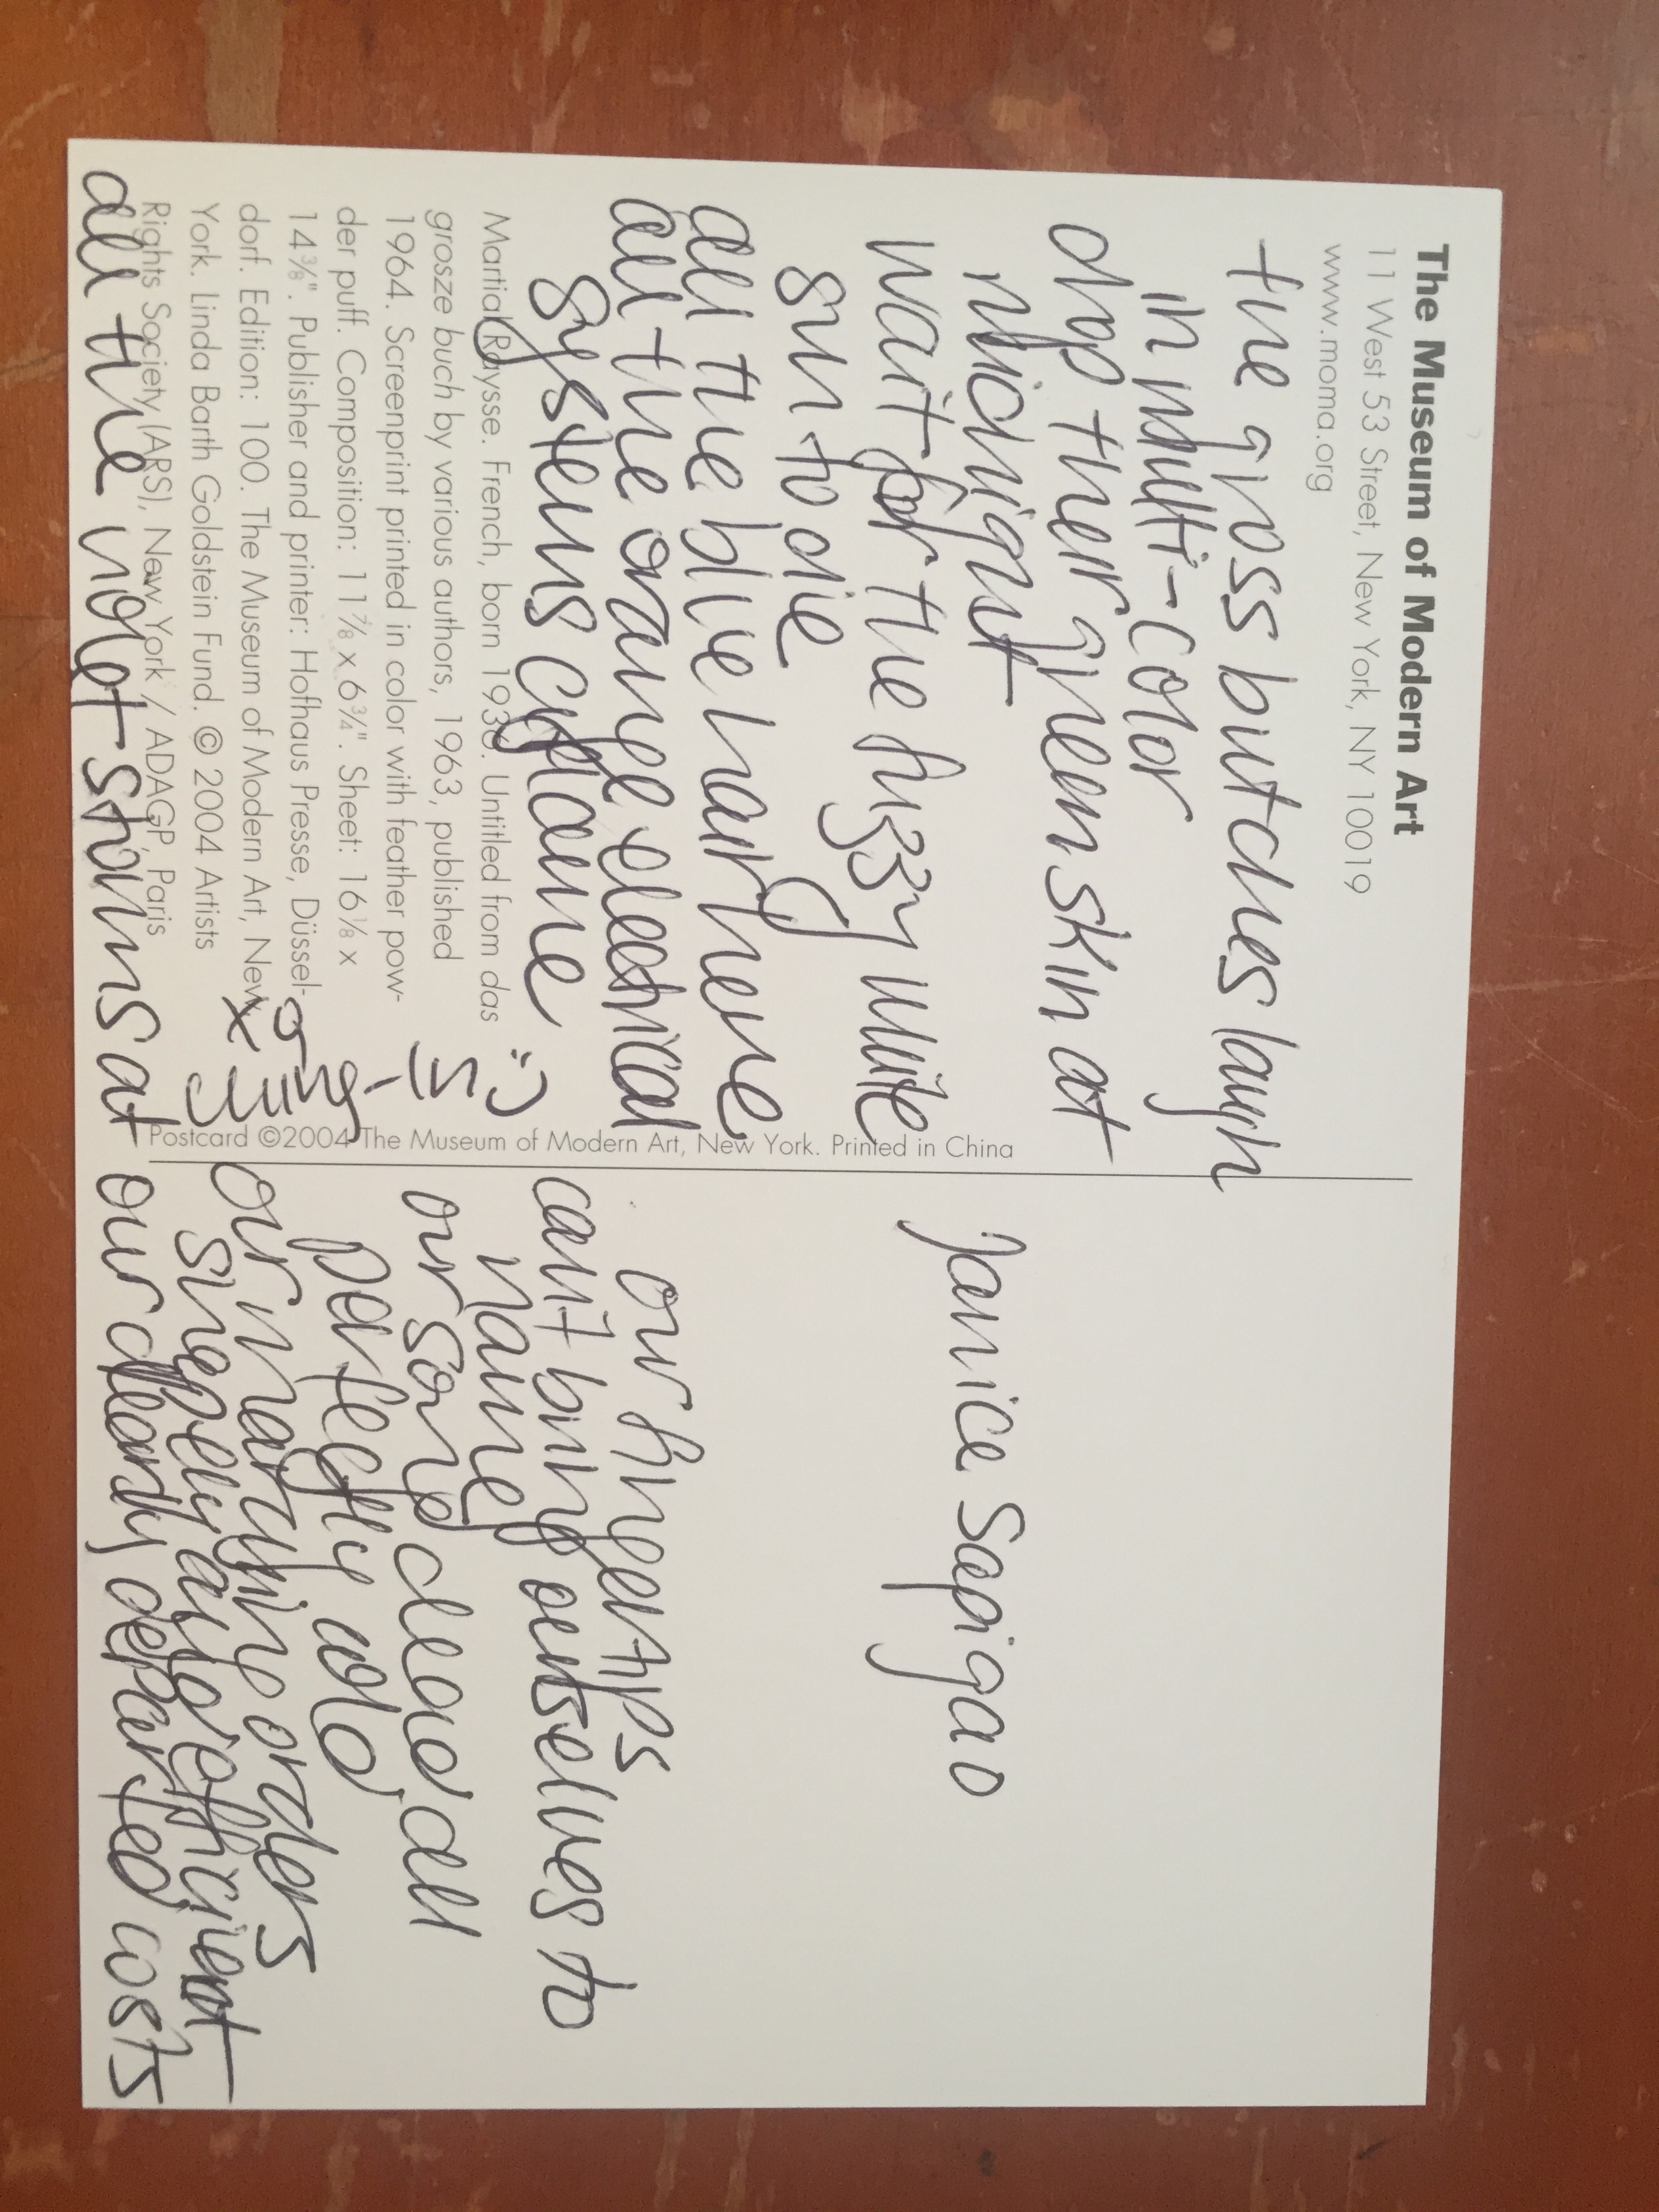 The Museum of Modern Art
11 West 53 Street, New York, NY 10019
www.moma.org
the gross butches laugh
in multi-color
drop their green skin at
midnight
wait for the fizzy white
sun to die
all the blue hair here
all the orange electrical
systems cyclone
Martial Raysse. French, born 1936. Untitled from das
grosze buch by various authors, 1963, published
1964. Screenprint printed in color with feather pow-
der puff. Composition: 11 7/8 x 6 3/4". Sheet: 16 1/8 x
14 3/8". Publisher and printer: Hofhaus Presse, Düssel-
dorf. Edition: 100. The Museum of Modern Art, New
York. Linda Barth Goldstein Fund. © 2004 Artists
Rights Society (ARS), New York / ADAGP, Paris
all the violet storms at
:)
Postcard ©2004 The Museum of Modern Art, New York. Printed in China
Janice Sapigao
our fingertips
can't bring ourselves to
name
our song dead all
perfectly cold
our marching orders
sheepely and efficient
our dearly departed costs